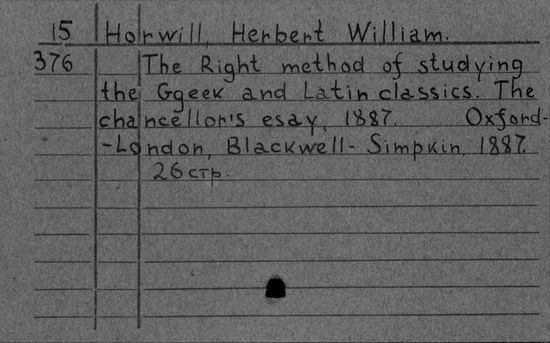 15 Horwill, Herbert William.
376 The Right method of studying
the Ggeek and Latin classics. The
chancellor's esay, 1887. Oxford-
-London, Blackwell- Simpkin, 1887.
26 стр.